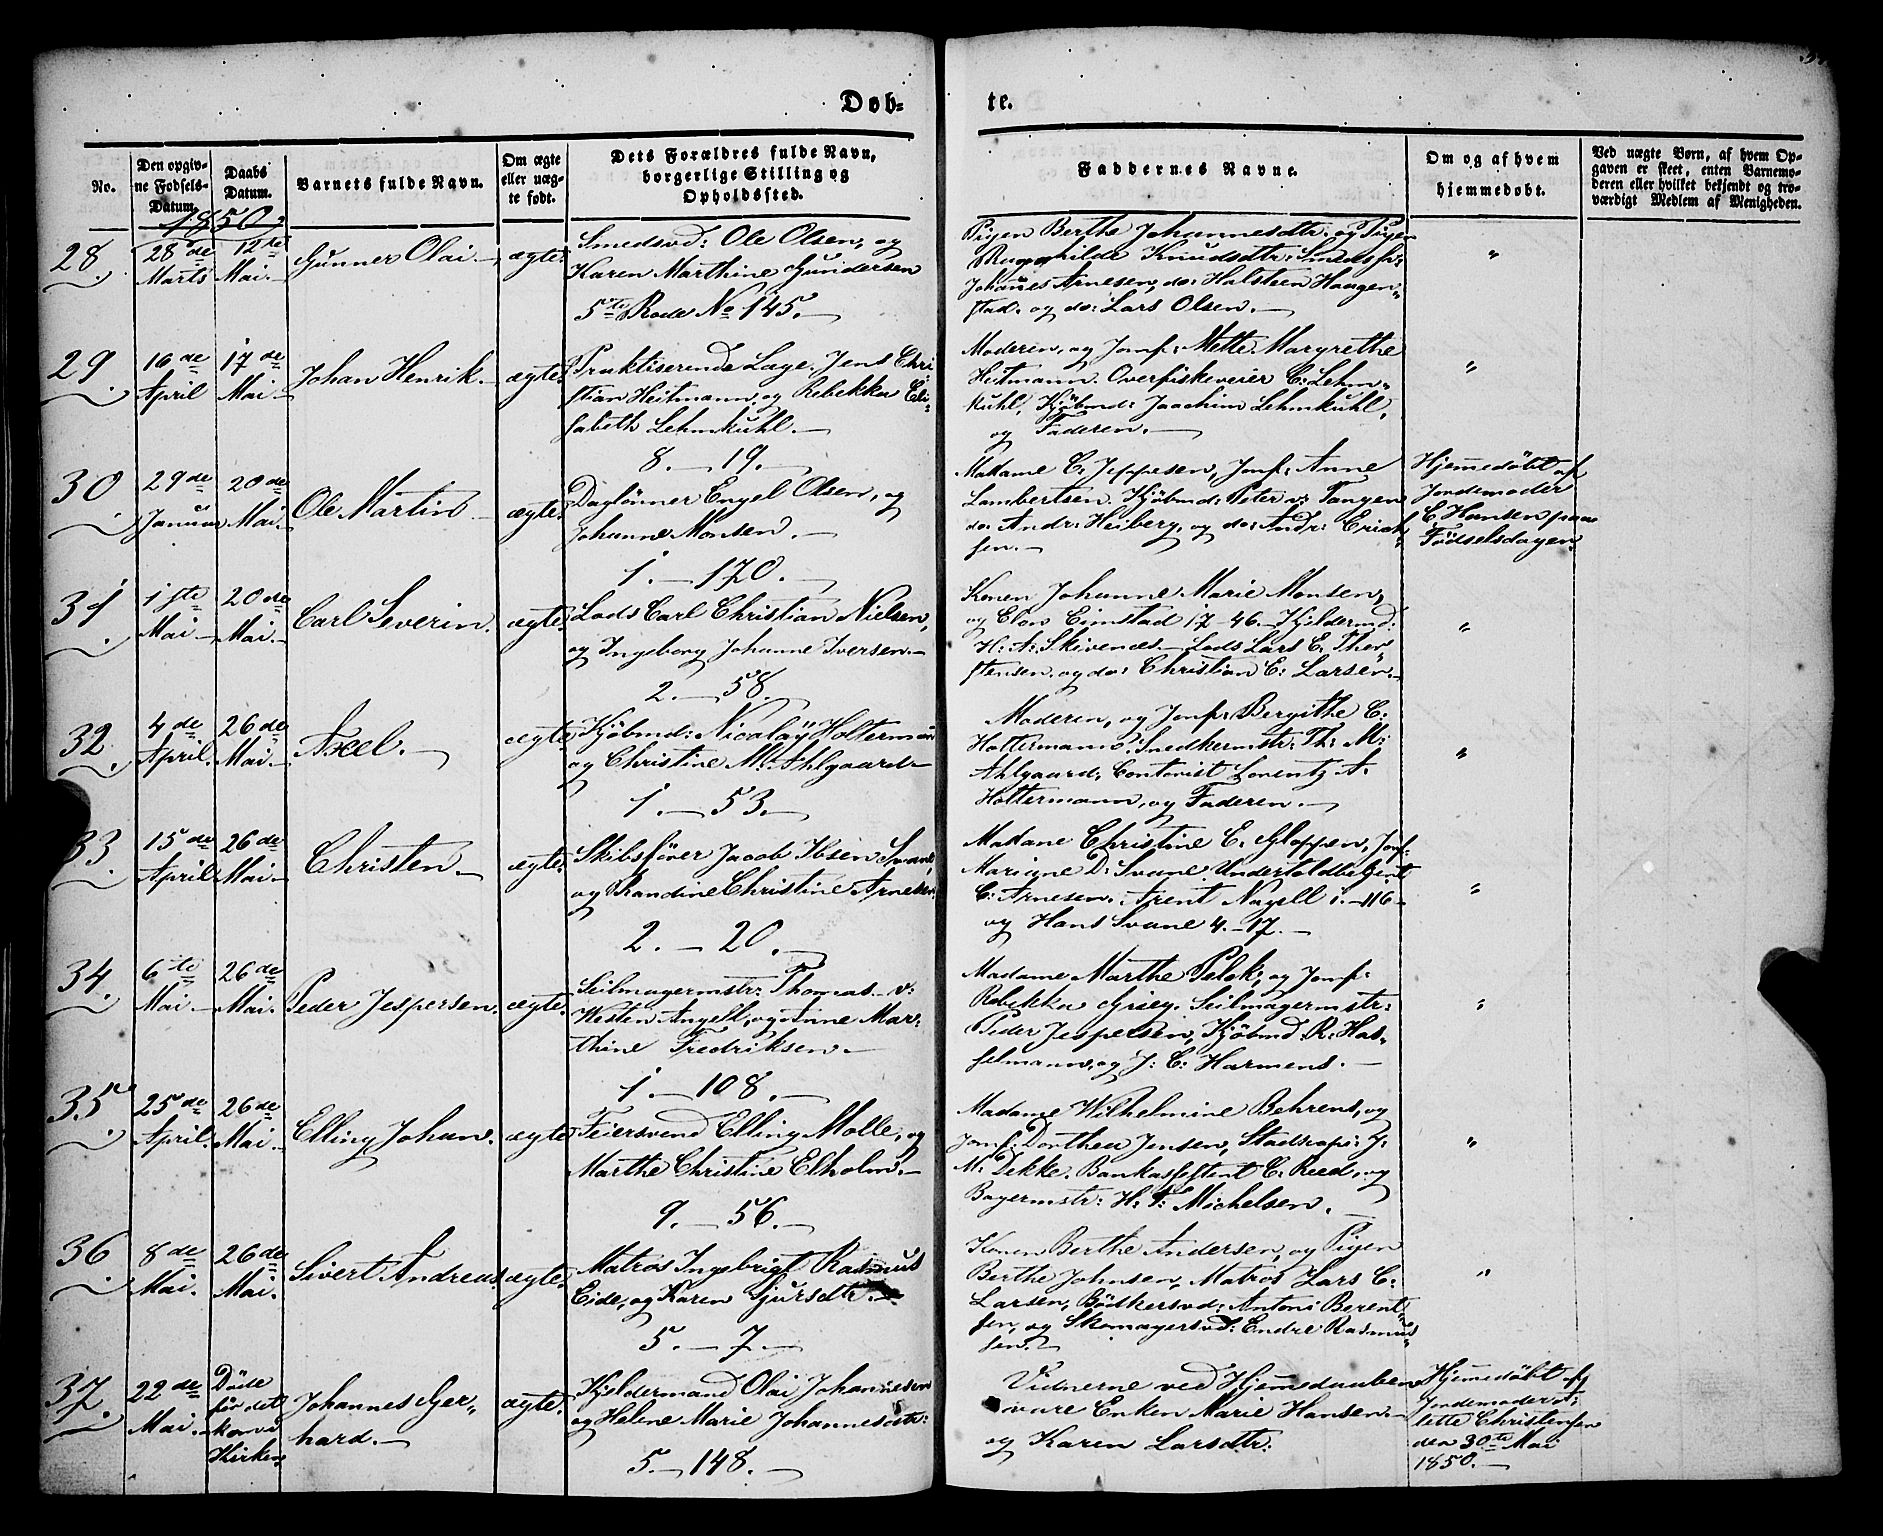 Døb-
te.
No.
Den opgiv-
ne Fødsels-
Datum.
Daabs
Datum.
Barnets fulde Navn.
Om ægte
eller uæg-
te født.
Dets Forældres fulde Navn,
borgerlige Stilling og
Opholdssted.
Faddernes Navne.
Om og af hvem
hjemmedøbt.
Ved uægte Børn, af hvem Op-
gaven er skeet, enten Barnemo-
deren eller hvilket bekjendt og tro-
værdigt Medlem af Menigheden.
1850.
28.
28de
Marts
12te
Mai.
Gunner Olai.
ægte.
Smedsvd: Ole Olsen, og
Karen Marthine Gundersen
5te Rode No 145.
Pigen Berthe Johannesdtr. og Pigen
Knudsdtr.
Johanes Arnesen, do: Halsteen Haagen-
stad. og do: Lars Olsen.
"
29.
16de
April
17de
Mai
Johan Henrik.
ægte.
Praktiserende Læge, Jens Chri-
stian Heitmann, og Rebekka Eli-
sabeth Lehmkuhl.
8. 19.
Moderen, og Jomf: Mette Margrethe
Heitmann. Overfiskeveier C: Lehm-
kuhl, Kjöbmd: Joachim Lehmkuhl,
og Faderen.
"
30
29de
Januar
20de
Mai.
Ole Martin
ægte.
Daglönner Engel Olsen, og
Johanne Monsen.
1. 170.
Madame C: Jeppesen, Jomf: Anne
Lambertsen. Kjöbmd: Peter v: Tangen
do: Andr: Heiberg, og do: Andr: Erich-
sen.
Hjemedöbt af
Jordemoder
C Hansen paa
Födselsdagen.
31.
1ste
Mai
20de
Mai.
Carl Severin.
ægte.
Lods Carl Christian Nielsen,
og Ingeborg Johanne Iversen.
2. 58.
Konen Johanne Marie Monsen,
og Elen Eimstad 17-46. Kjeldermd:
H: A: Skivenes. Lods Lars E. Thor-
stensen. og do: Christian E: Larsen.
"
32.
4de
April.
26de
Mai.
Axel.
ægte.
Kjöbmd: Nicolaÿ Holtermann
og Christine M: Ahlgaard
1. 53.
Moderen, og Jomf: Bergithe C:
Holtermann. Snedkermstr: Th: M:
Ahlgaard, Contorist Lorentz A.
Holtermann, og Faderen.
"
33.
15de
April
26de
Mai.
Christen
ægte.
Skibsförer Jacob Ibsen Svane,
og Randine Christine Arnesen.
2. 20.
Madame Christine E. Gloppen, Jomf:
Mariane D: Svane Undertoldbetjent
C: Arnesen. Arent Nagell 1.-116
og Hans Svane 4.-17.
"
34.
6te
Mai
26de
Mai.
Peder Jespersen.
ægte.
Seilmagermstr: Thomas v:
Westen Angell, og Anne Mar-
thine Fredriksen.
1. 108.
Madame Marthe Peleh, og Jomf:
Rebekka Grieg. Seilmagermstr:
Peder Jespersen, Kjöbmd: R: Has-
selmann, og J: C: Harmens.
"
35.
25de
April.
26de
Mai.
Elling Johan.
ægte.
Feiersvend Elling Molle, og
Marthe Christine Elholm.
9. 56.
Madame Wilhelmine Behrens, og
Jomf: Dorthea Jensen, Stadscap: J:
M: Dekke. Bankassistent C: Reed, og
Bagermstr: H: T: Michelsen.
"
36
8de
Mai.
26de
Mai.
Sivert Andreas.
ægte.
Matros Ingebrigt Rasmus
Eide, og Karen Sjursdtr.
5. 7.
Konen Berthe Andersen, og Pigen
Berthe Johnsen, Matros Lars C:
Larsen, Bödkersvd: Antoni Berent-
sen, og Skomagersvd: Endre Rasmus-
sen.
"
37.
22de
Mai.
Döde
för det
kom i
Kirken
Johannes Ger-
hard.
ægte.
Kjeldermand Olai Johannesen
og Helene Marie Johannesdtr:
5. 148.
Vidnerne ved Hjemedaaben
vare Enken Marie Hansen
og Karen Larsdtr.
Hjemedöbt af
Jordemoder
Christensen
den 30te Mai
1850.